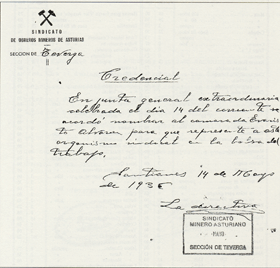 SINDICATO
DE OBREROS MINEROS DE ASTURIAS
SECCIÓN DE Teverga
Credencial
En junta general extraordinaria
celebrada el dia 14 del corriente se
acordó nombrar al camarada Evaris
to Alvarez para que represente a este
organismo sindical en la bolsa del
trabajo.
Santianes 14 de Mayo
de 1936
La directiva
SINDICATO
MINERO ASTURIANO
SECCIÓN DE TEVERGA